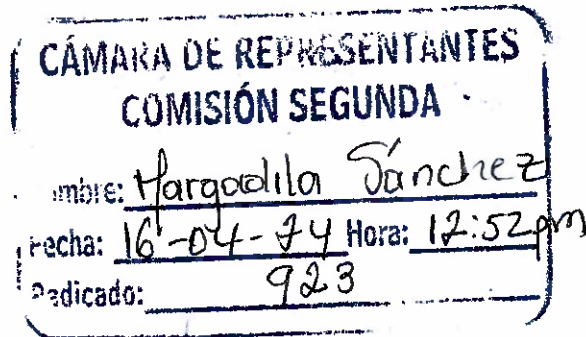 CÁMARA DE REPRESENTANTES
COMISIÓN SEGUNDA
ombre: Sánchez
Fecha: 16-04-24 Hora: 12:52pm
Radicado: 923